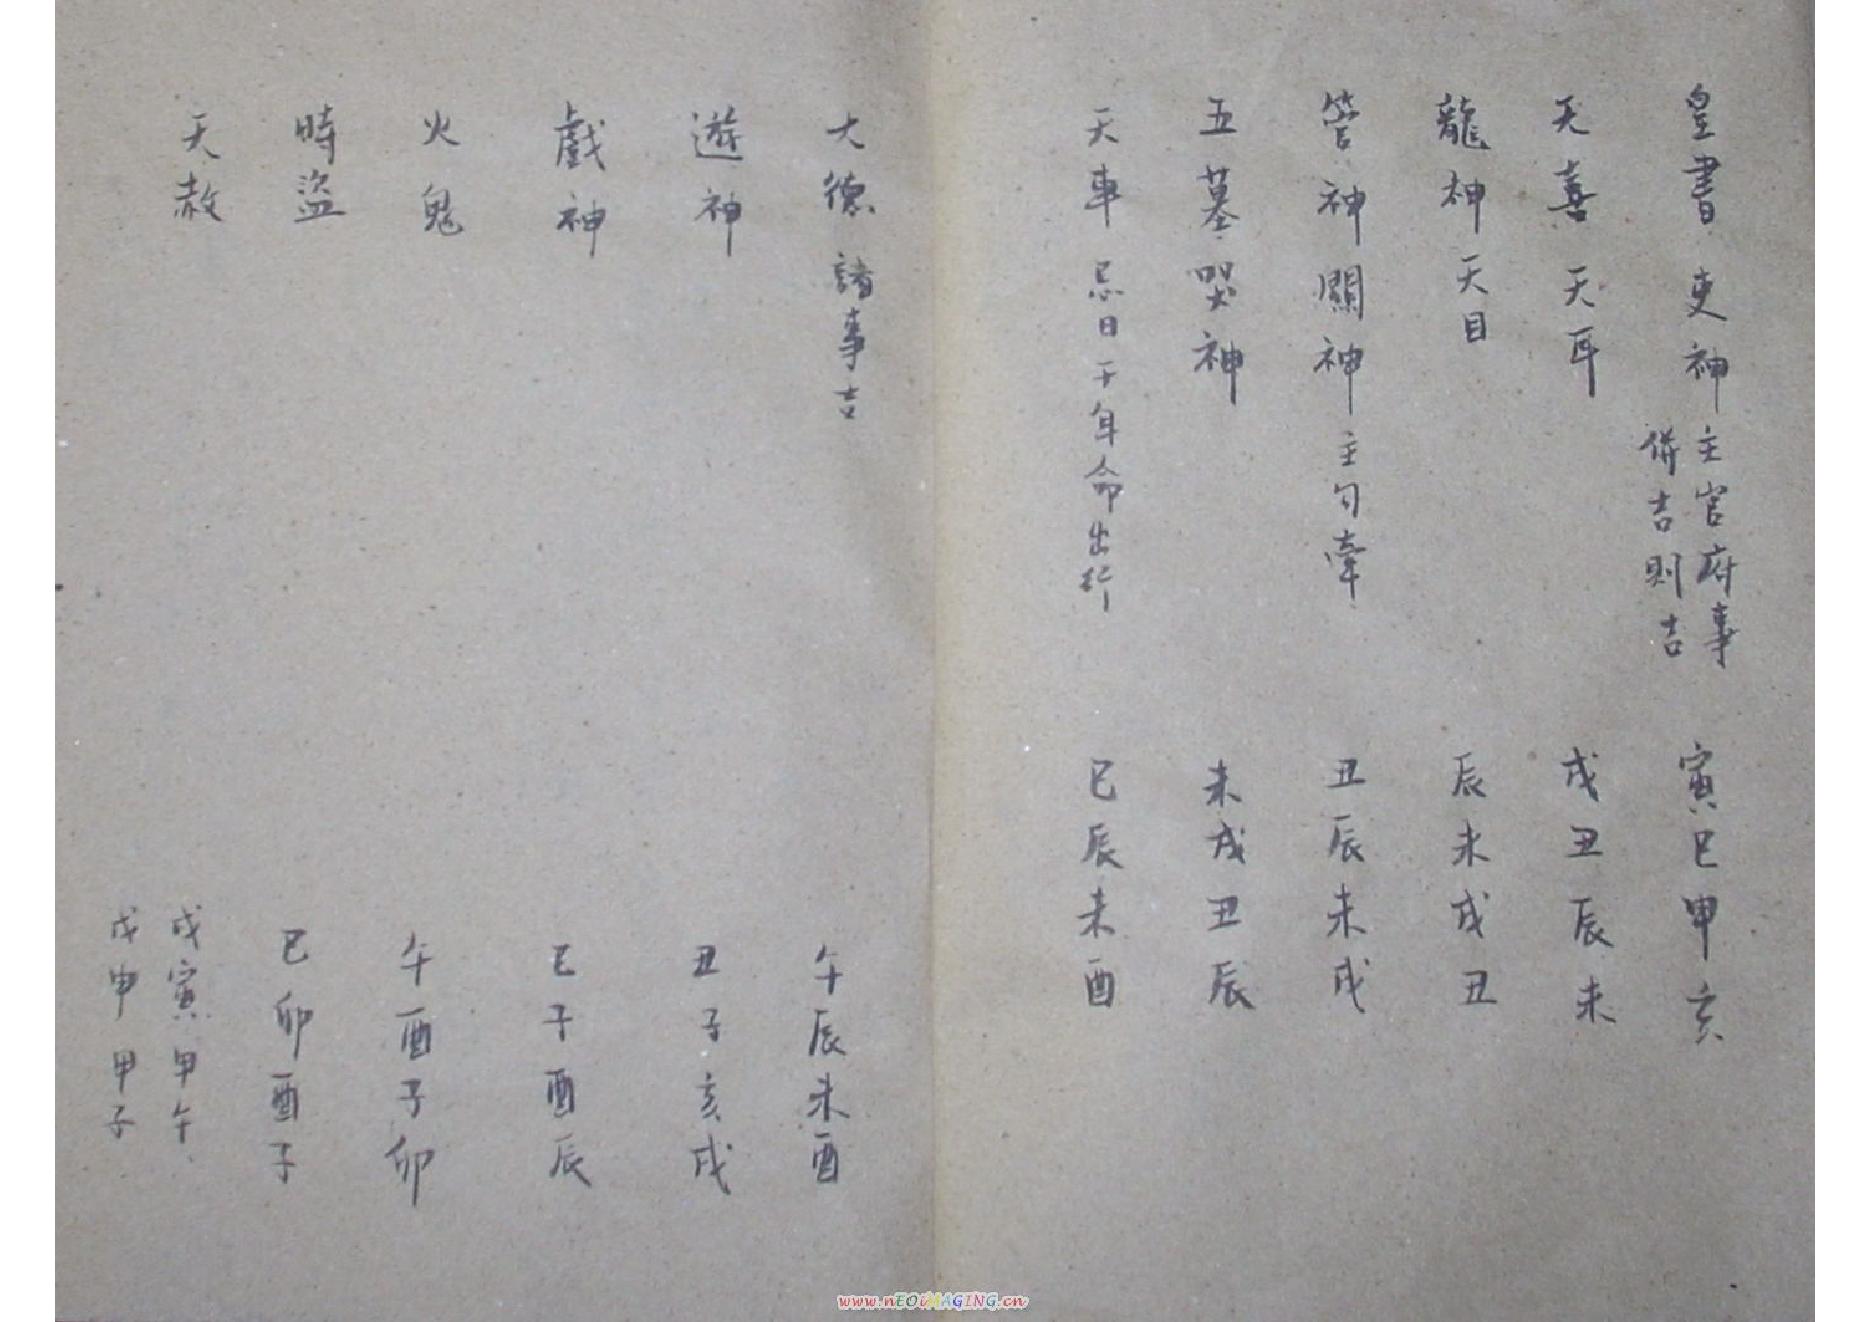 皇書 吏神 主官府事 寅巳申亥
併吉則吉
天喜 天耳 戌丑辰未
龍神 天目 辰未戌丑
管神 關神 主勾牽 丑辰未戌
五墓 哭神 未戌丑辰
天車 忌日干年命出行 巳辰未酉
大德 諸事吉 午辰未酉
遊神 丑子亥戌
戲神 巳子酉辰
火鬼 午酉子卯
時盜 巳卯酉子
天赦 戊寅甲午
戊申甲子
www.nEOiMAGING.cn